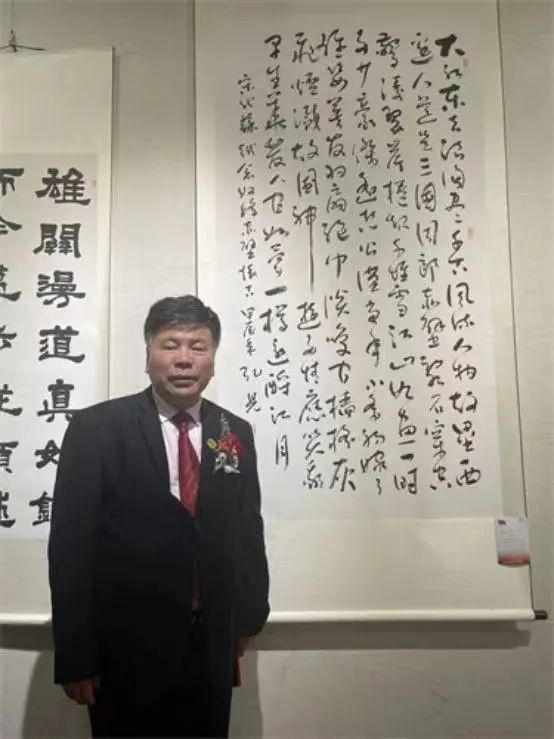 大江东去浪淘尽千古风流人物故垒西
边人道是三国周郎赤壁乱石穿空
惊涛裂岸卷起千堆雪江山如画一时
多少豪杰遥想公瑾当年小乔初嫁了
雄姿英发羽扇纶巾谈笑间樯橹灰
飞烟灭故国神游多情应笑我
早生华发人间如梦一樽还酹江月
宋代苏轼念奴娇赤壁怀古甲辰年
雄關漫道真如鐵
而今邁步從頭越